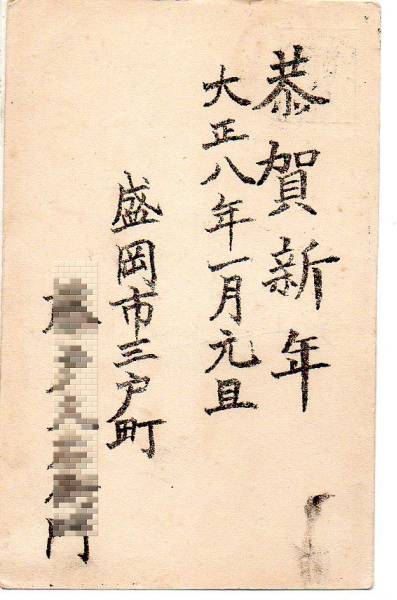 恭賀新年
大正八年一月元旦
盛岡市三戸町